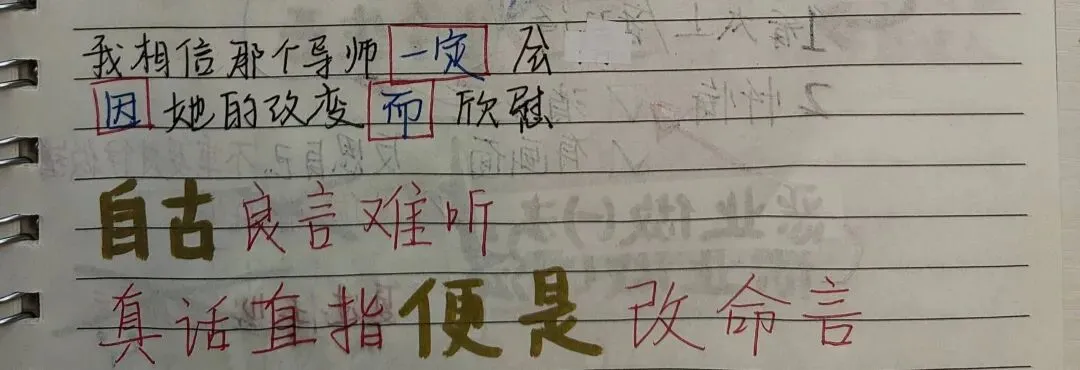 我相信那个导师一定会
因她的改变而欣慰
自古良言难听
真话直指便是改命言